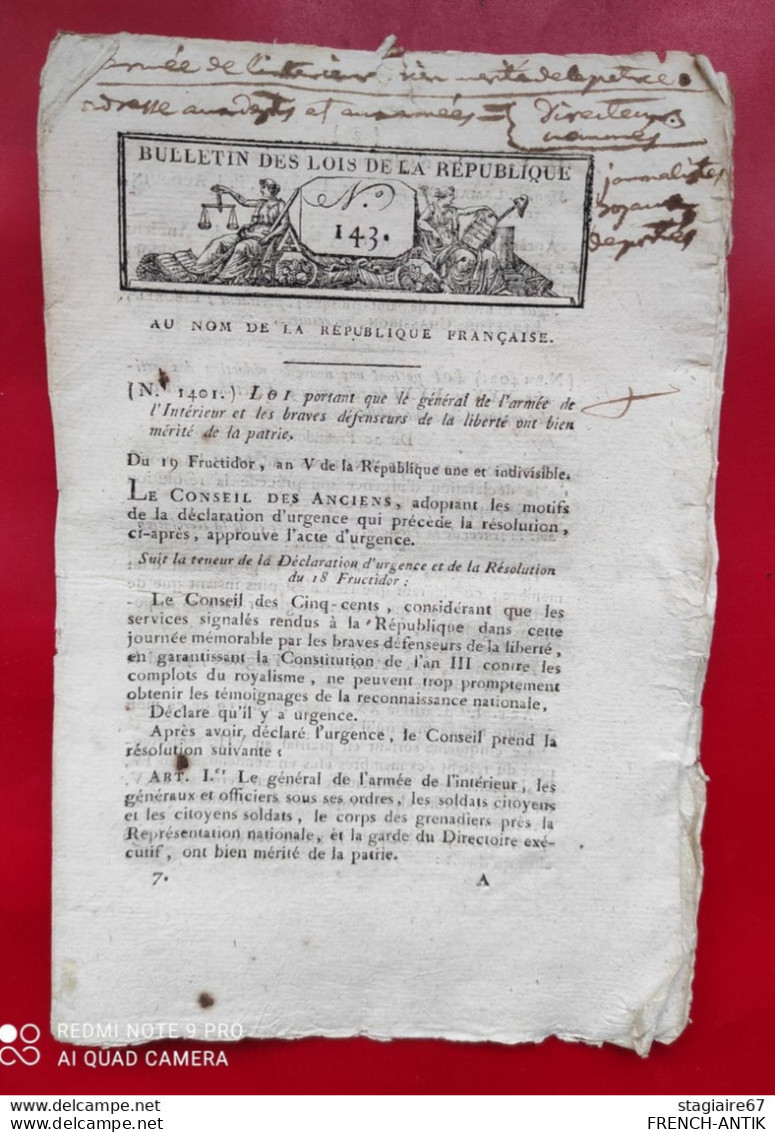 armée de l'interieur bien merité de la patrie.
adresse aux depts et aux armées = directeurs
nommés
journalistes
royaux
deportés
BULLETIN DES LOIS DE LA RÉPUBLIQUE
N.º
143.
AU NOM DE LA RÉPUBLIQUE FRANÇAISE.
(N.º 1401.) LOI portant que le général de l'armée de
l'Intérieur et les braves défenseurs de la liberté ont bien
mérité de la patrie.
Du 19 Fructidor, an V de la République une et indivisible.
LE CONSEIL DES ANCIENS, adoptant les motifs
de la déclaration d'urgence qui précède la résolution,
ci-après, approuve l'acte d'urgence.
Suit la teneur de la Déclaration d'urgence et de la Résolution
du 18 Fructidor :
Le Conseil des Cinq-cents, considérant que les
services signalés rendus à la République dans cette
journée mémorable par les braves défenseurs de la liberté,
en garantissant la Constitution de l'an III contre les
complots du royalisme, ne peuvent trop promptement
obtenir les témoignages de la reconnaissance nationale,
Déclare qu'il y a urgence.
Après avoir déclaré l'urgence, le Conseil prend la
résolution suivante :
ART. I.er Le général de l'armée de l'intérieur, les
généraux et officiers sous ses ordres, les soldats citoyens
et les citoyens soldats, le corps des grenadiers près la
Représentation nationale, et la garde du Directoire exé-
cutif, ont bien mérité de la patrie.
7. A
REDMI NOTE 9 PRO
AI QUAD CAMERA
stagiaire67
FRENCH-ANTIK